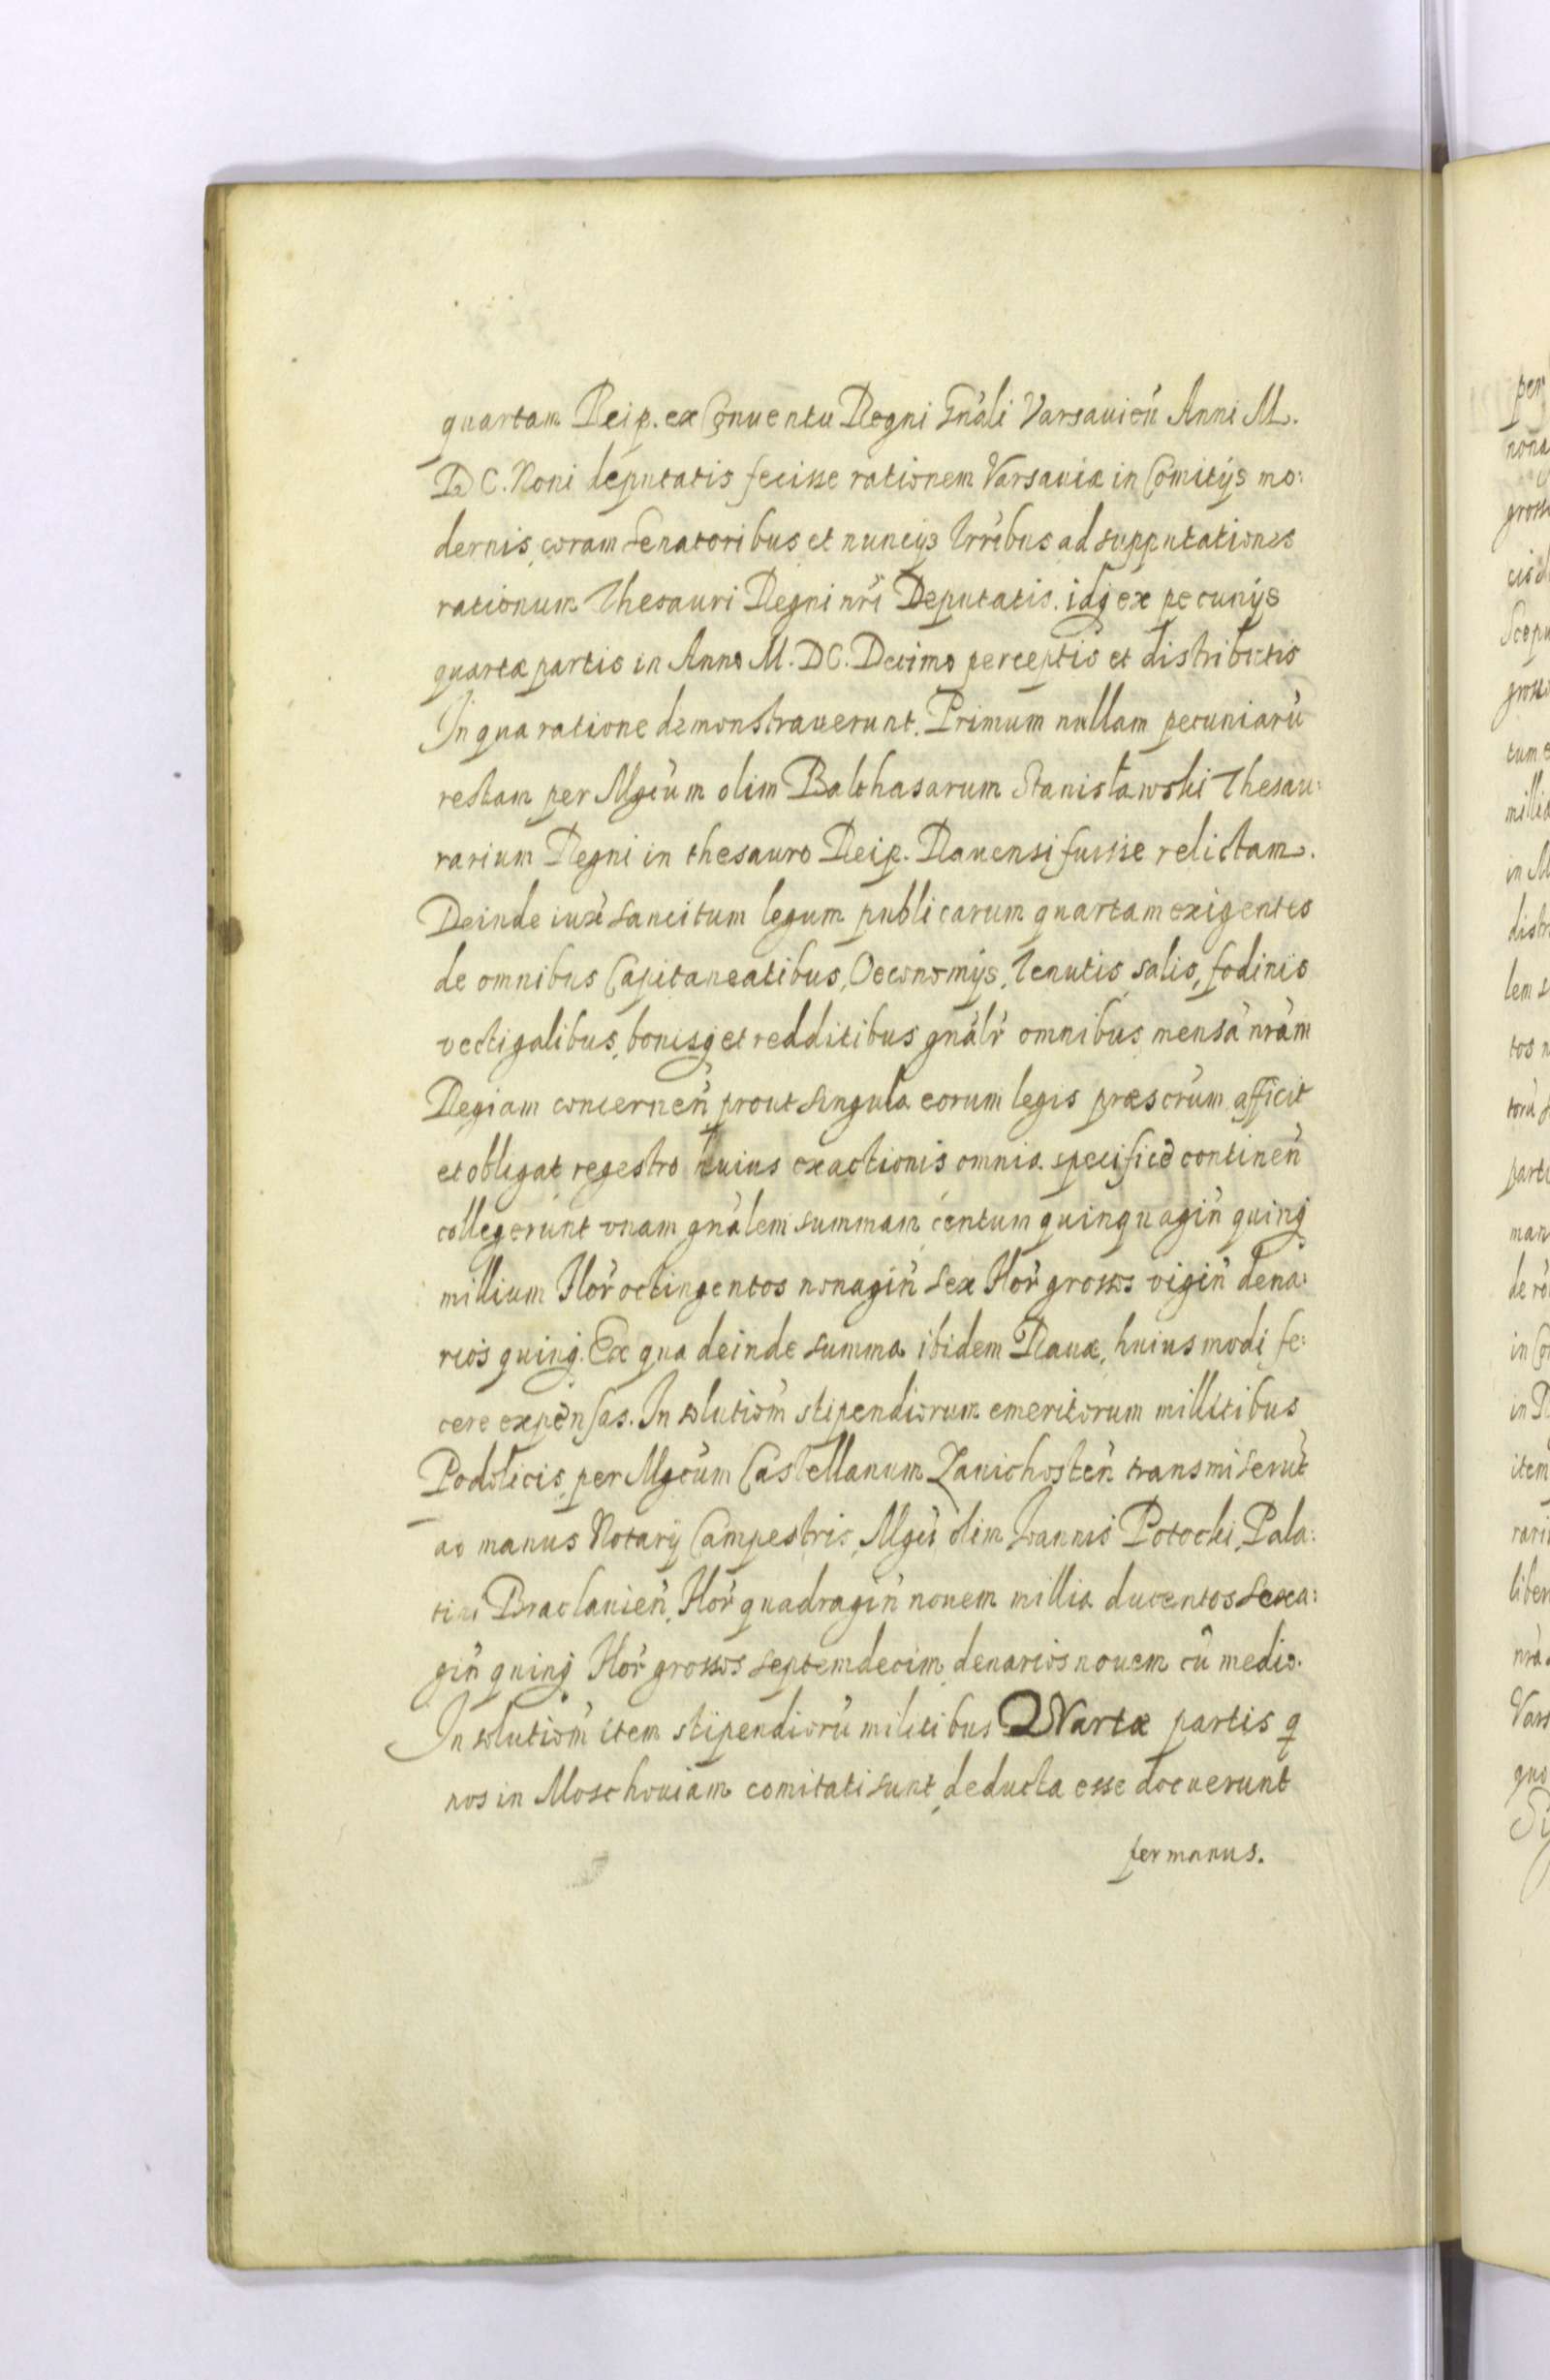 quartam Reip. ex Conuentu Regni Gnali Varsauien Anni M.
DC. Noni deputatis fecisse rationem Varsauiæ in Comitijs mo:
dernis, coram Senatoribus et nuncijs Trribus ad supputationes
rationum Thesauri Regni nri Deputatis. idq ex pecunijs
quartæ partis in Anno M. DC. Decimo perceptis et distributis
In qua ratione demonstrauerunt. Primum nullam pecuniarũ
restam per Mgcum olim Balthasarum Stanisławski Thesau:
rarium Regni in thesauro Reip. Rauensi fuisse relictam.
Deinde iuxt sancitum legum publicarum quartam exigentes
de omnibus Capitaneatibus, Oeconomijs, Tenutis, salis, fodinis
vectigalibus, bonisq et redditibus gnalr omnibus mensã nram
Regiam concernen prout singula eorum legis præscrum afficit
et obligat regestro huius exactionis omnia specificè continen
collegerunt vnam gnalem summam centum quinquagin quinq
millium flor octingentos nonagin sex flor grossos vigin dena:
rios quinq. Ex qua deinde summa ibidem Rauæ, huiusmodi fe:
cere expensas. In solutiom stipendiorum emeritorum millitibus
Podolicis, per Mgcum Castellanum Zauichosten transmiserũt
ad manus Notarij Campestris, Mgci olim Ioannis Potocki, Pala:
tini Braclauien, flor quadragin nouem millia ducentos sexa:
gin quinq flor grossos septemdecim, denarios nouem cũ medio.
In solutiom item stipendiorũ militibus QVartæ partis q
nos in Moschouiam comitati sunt, deducta esse docuerunt
per manus.